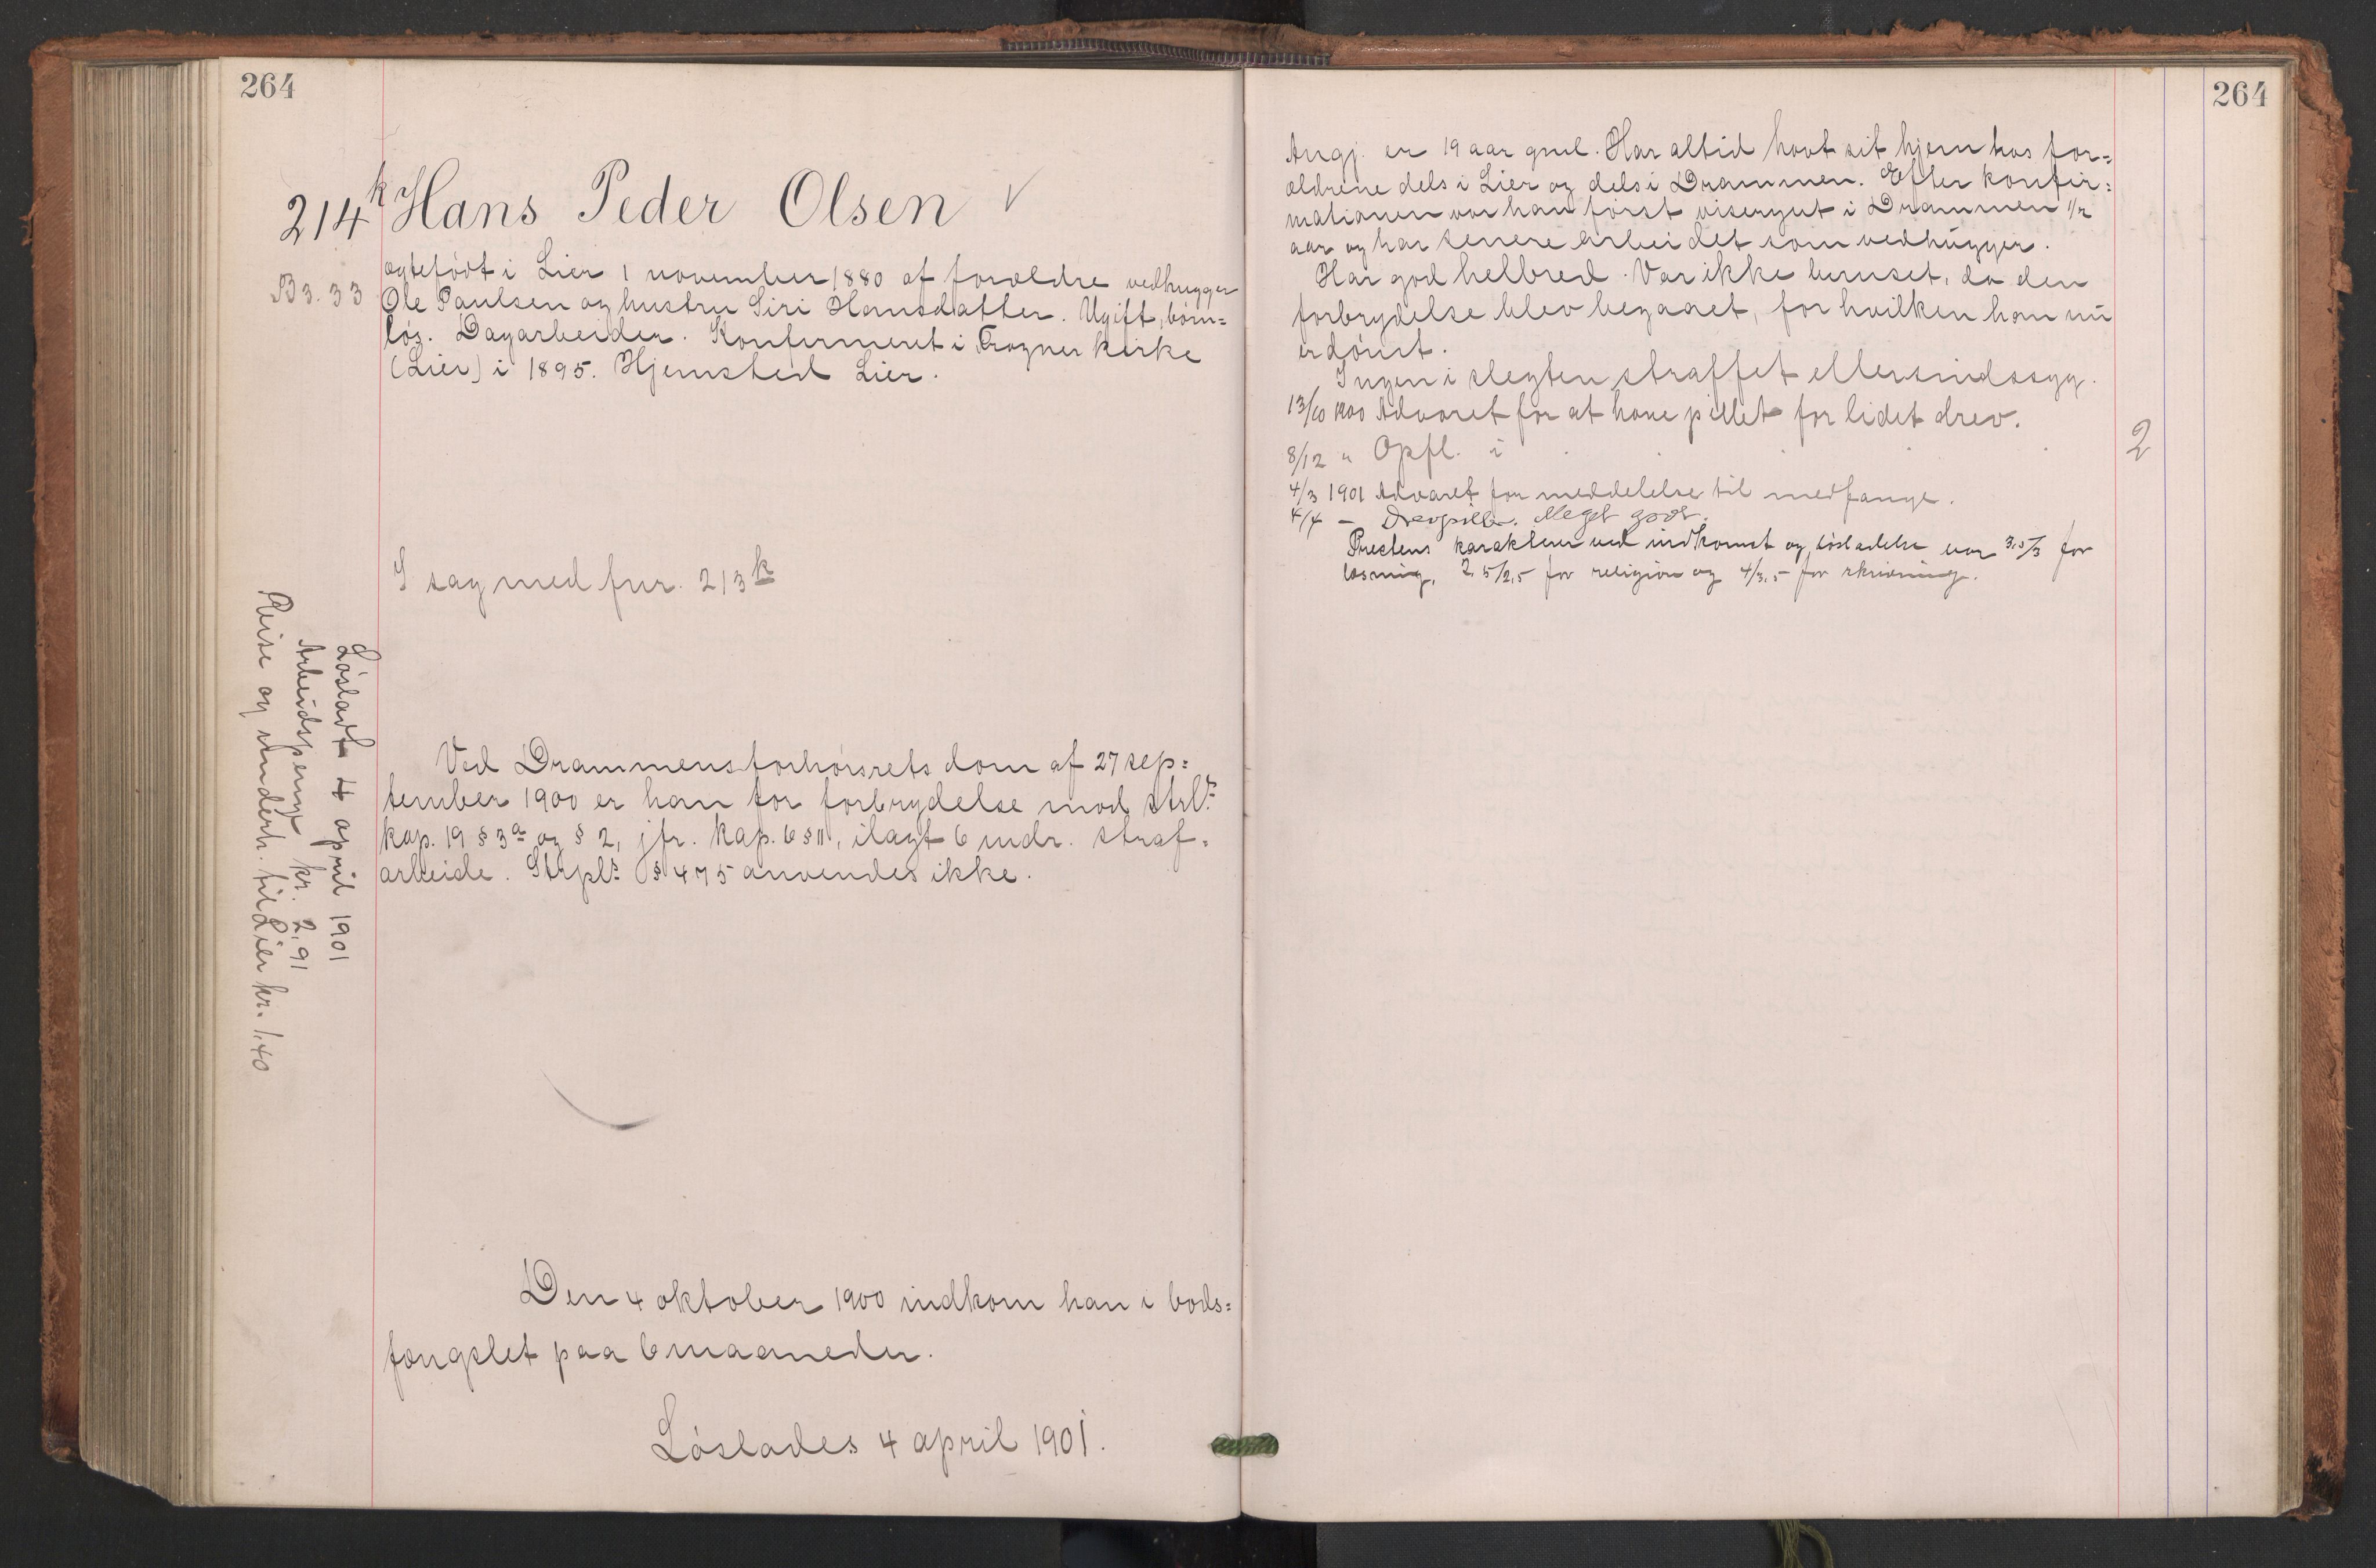 264
214k Hans Peder Olsen ✓
B3.33
ægtefødt i Lier 1 november 1880 af forældre vedhugger
Ole Paulsen og hustru Siri Hansdatter. Ugift, børn=
løs. Dagarbeider. Konfirmeret i Frogner kirke
(Lier) i 1895. Hjemsted Lier.
I sag med fnr. 213k
Løsladt 4 april 1901
Arbeidspenge kr. 2,91
Reise og underh. til Lier kr. 1,40
Ved Drammens forhørsrets dom af 27 sep=
tember 1900 er han for forbrydelse mod strls
kap. 19 § 3a og § 2, jfr. kap. 6 § 11, ilagt 6 mdr. straf=
arbeide. Strpls § 475 anvendes ikke.
Den 4 oktober 1900 indkom han i bods=
fængslet paa 6 maaneder.
Løslades 4 april 1901.
264
Angj. er 19 aar gml. Har altid havt sit hjem hos for=
ældrene dels i Lier og dels i Drammen. Efter konfir=
mationen var han først visergut i Drammen 1/2
aar og har senere arbeidet som vedhugger.
Har god helbred. Var ikke beruset, da den
forbrydelse blev begaaet, for hvilken han nu
er dømt.
Ingen i slegten straffet eller sindssyg.
13/10 1900 Advaret for at have pillet for lidet drev.
8/12 " Opfl. i . . . . . 2
4/3 1901 Advaret for meddelelse til medfange.
4/4 - Drevpiller. Meget godt.
Prestens karakterer ved indkomst og løsladelse var 3,5/3 for
læsning, 2,5/2,5 for religion og 4/3,5 for skrivning.